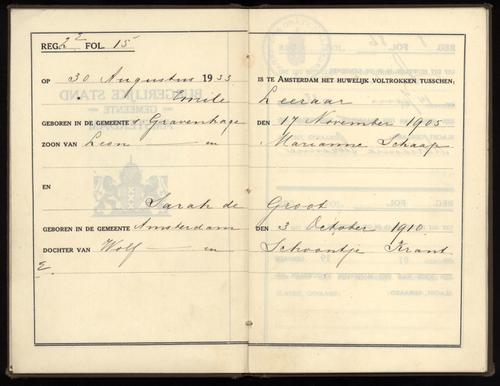 REG. 2E FOL. 15
OP 30 Augustus 1933 IS TE AMSTERDAM HET HUWELIJK VOLTROKKEN TUSSCHEN:
Emile Leeraar
GEBOREN IN DE GEMEENTE 's Gravenhage DEN 17 November 1905
ZOON VAN Leon en Marianne Schaap
EN
Sarah de Groot
GEBOREN IN DE GEMEENTE Amsterdam DEN 3 October 1910
DOCHTER VAN Wolf en Schoontje Krant
E.